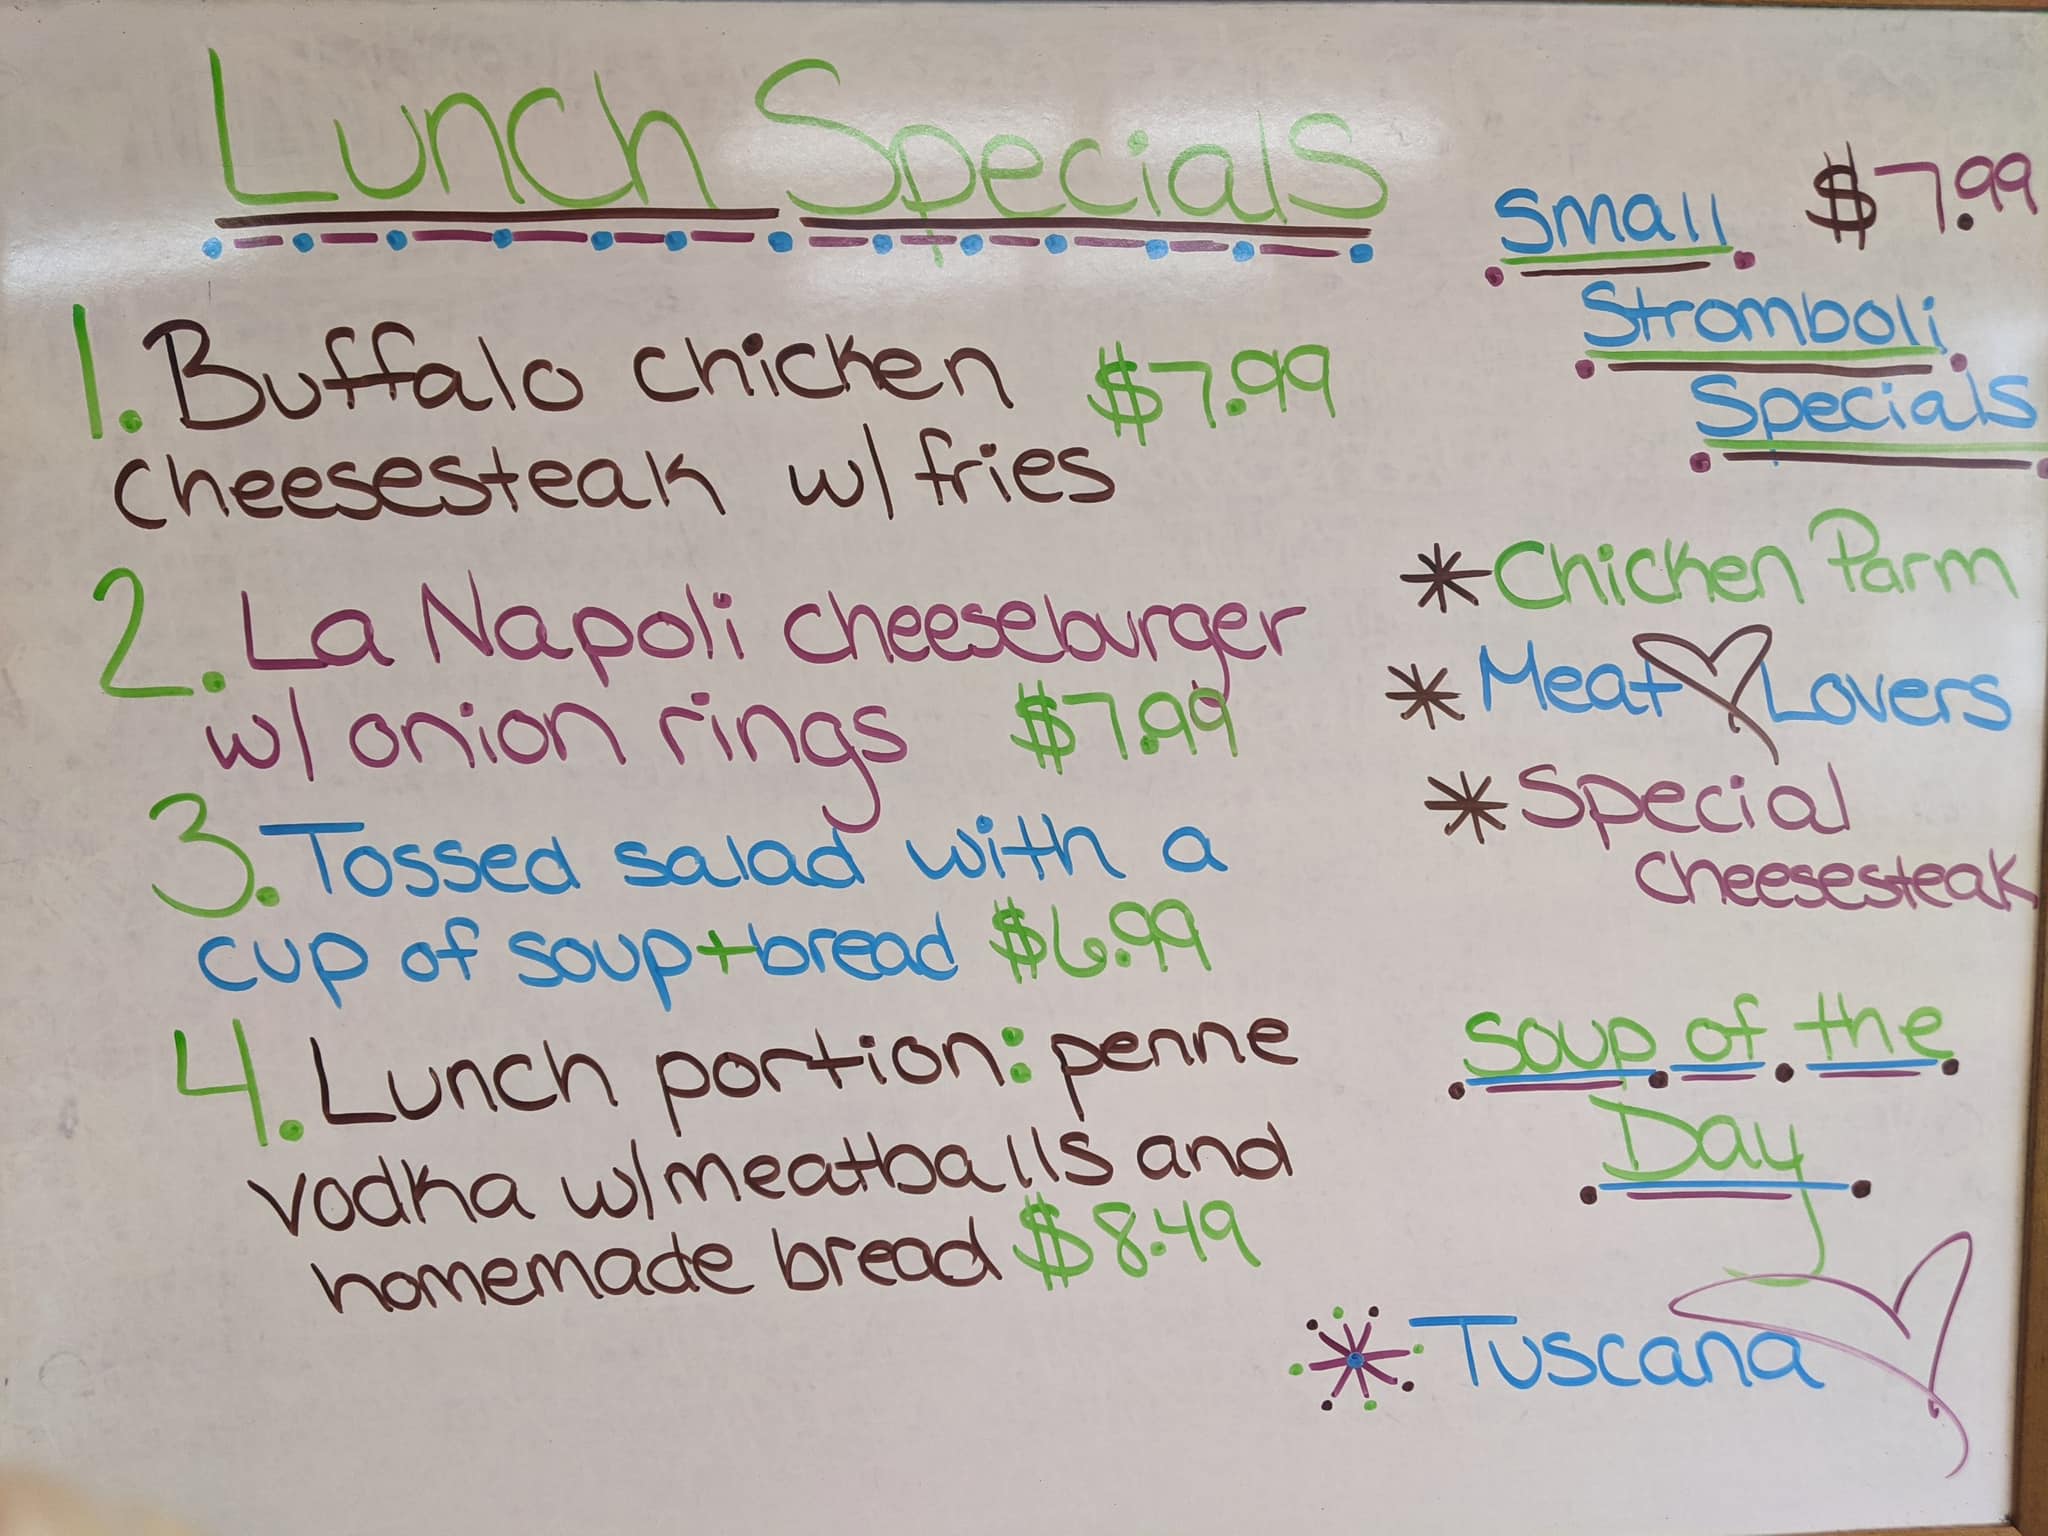 Lunch Specials
1. Buffalo chicken $7.99
cheesesteak w/ fries
2. La Napoli cheeseburger
w/ onion rings $7.99
3. Tossed salad with a
cup of soup + bread $6.99
4. Lunch portion: penne
vodka w/ meatballs and
homemade bread $8.49
Small $7.99
Stromboli
Specials
* Chicken Parm
* Meat Lovers
* Special
cheesesteak
Soup of the
Day
* Tuscana